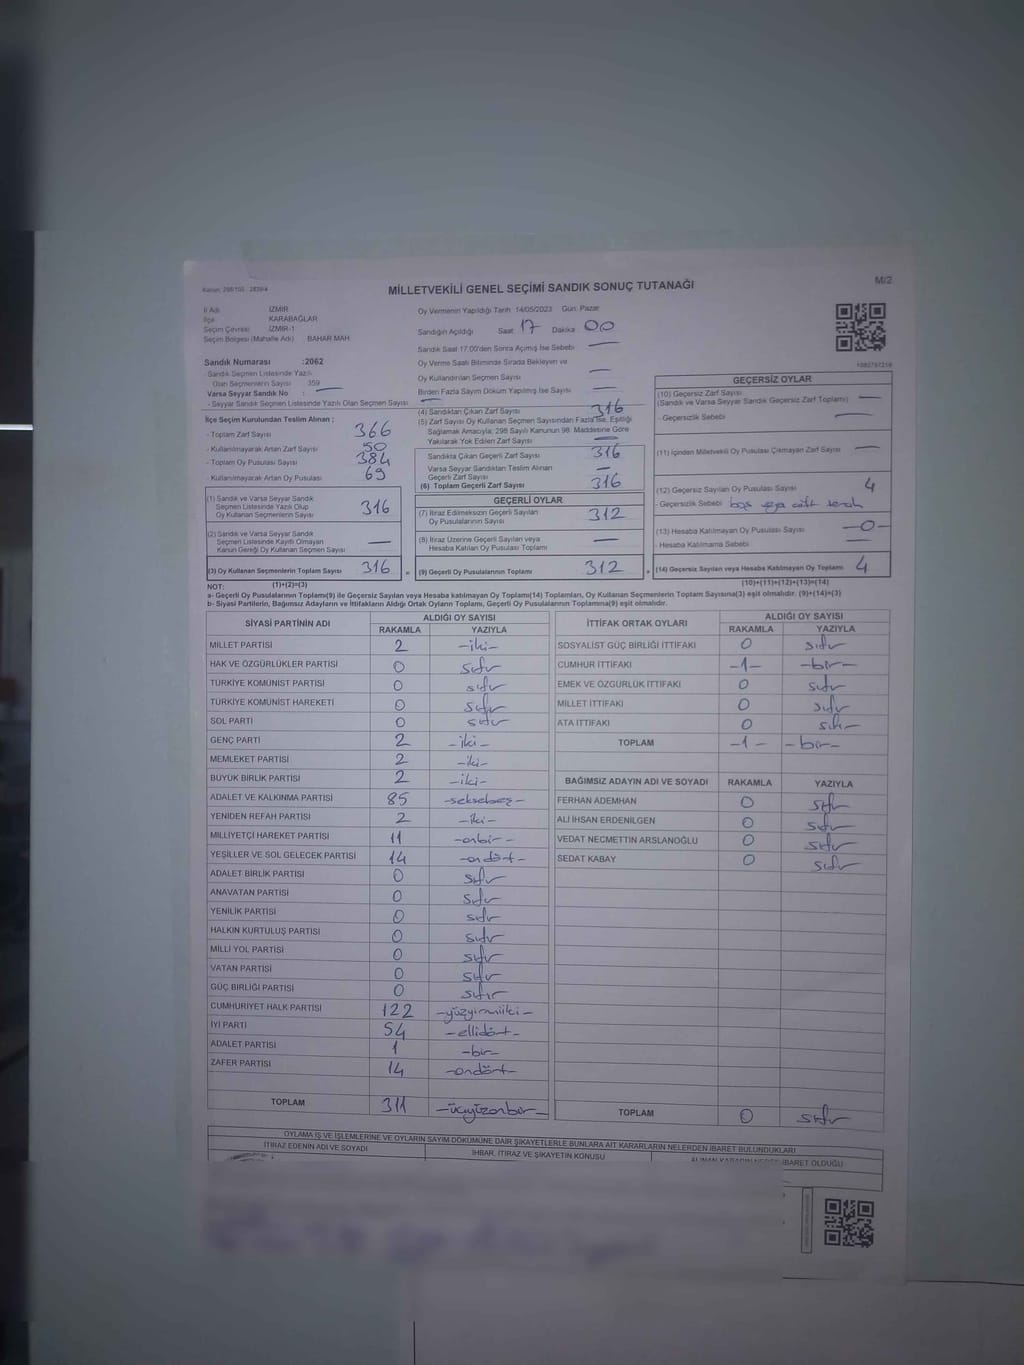 Kanun: 298/105 - 2839/4
MİLLETVEKİLİ GENEL SEÇİMİ SANDIK SONUÇ TUTANAĞI
M/2
İl Adı İZMİR
İlçe KARABAĞLAR
Seçim Çevresi İZMİR-1
Seçim Bölgesi (Mahalle Adı) BAHAR MAH
Sandık Numarası :2062
- Sandık Seçmen Listesinde Yazılı
Olan Seçmenlerin Sayısı 359
Varsa Seyyar Sandık No : —
- Seyyar Sandık Seçmen Listesinde Yazılı Olan Seçmen Sayısı —
Oy Vermenin Yapıldığı Tarih 14/05/2023 Gün: Pazar
Sandığın Açıldığı Saat 17 Dakika 00
Sandık Saat 17.00'den Sonra Açılmış İse Sebebi —
Oy Verme Saati Bitiminde Sırada Bekleyen ve
Oy Kullandırılan Seçmen Sayısı —
Birden Fazla Sayım Döküm Yapılmış İse Sayısı —
İlçe Seçim Kurulundan Teslim Alınan ;
- Toplam Zarf Sayısı 366
- Kullanılmayarak Artan Zarf Sayısı 50
- Toplam Oy Pusulası Sayısı 384
- Kullanılmayarak Artan Oy Pusulası 69
(1) Sandık ve Varsa Seyyar Sandık
Seçmen Listesinde Yazılı Olup
Oy Kullanan Seçmenlerin Sayısı 316
(2) Sandık ve Varsa Seyyar Sandık
Seçmen Listesinde Kayıtlı Olmayan
Kanun Gereği Oy Kullanan Seçmen Sayısı —
(3) Oy Kullanan Seçmenlerin Toplam Sayısı 316
(4) Sandıktan Çıkan Zarf Sayısı 316
(5) Zarf Sayısı Oy Kullanan Seçmen Sayısından Fazla İse, Eşitliği
Sağlamak Amacıyla, 298 Sayılı Kanunun 98. Maddesine Göre
Yakılarak Yok Edilen Zarf Sayısı —
Sandıkta Çıkan Geçerli Zarf Sayısı 316
Varsa Seyyar Sandıktan Teslim Alınan
Geçerli Zarf Sayısı —
(6) Toplam Geçerli Zarf Sayısı 316
GEÇERLİ OYLAR
(7) İtiraz Edilmeksizin Geçerli Sayılan
Oy Pusulalarının Sayısı 312
(8) İtiraz Üzerine Geçerli Sayılan veya
Hesaba Katılan Oy Pusulası Toplamı —
(9) Geçerli Oy Pusulalarının Toplamı 312
GEÇERSİZ OYLAR
(10) Geçersiz Zarf Sayısı
(Sandık ve Varsa Seyyar Sandık Geçersiz Zarf Toplamı) —
- Geçersizlik Sebebi —
(11) İçinden Milletvekili Oy Pusulası Çıkmayan Zarf Sayısı —
(12) Geçersiz Sayılan Oy Pusulası Sayısı 4
- Geçersizlik Sebebi boş veya
(13) Hesaba Katılmayan Oy Pusulası Sayısı —0—
- Hesaba Katılmama Sebebi —
(14) Geçersiz Sayılan veya Hesaba Katılmayan Oy Toplamı 4
NOT: (1)+(2)=(3)
(10)+(11)+(12)+(13)=(14)
a- Geçerli Oy Pusulalarının Toplamı(9) ile Geçersiz Sayılan veya Hesaba katılmayan Oy Toplamı(14) Toplamları, Oy Kullanan Seçmenlerin Toplam Sayısına(3) eşit olmalıdır. (9)+(14)=(3)
b- Siyasi Partilerin, Bağımsız Adayların ve İttifakların Aldığı Ortak Oyların Toplamı, Geçerli Oy Pusulalarının Toplamına(9) eşit olmalıdır.
SİYASİ PARTİNİN ADI ALDIĞI OY SAYISI
RAKAMLA YAZIYLA
MİLLET PARTİSİ 2 -iki-
HAK VE ÖZGÜRLÜKLER PARTİSİ 0 sıfır
TÜRKİYE KOMÜNİST PARTİSİ 0 sıfır
TÜRKİYE KOMÜNİST HAREKETİ 0 sıfır
SOL PARTİ 0 sıfır
GENÇ PARTİ 2 -iki-
MEMLEKET PARTİSİ 2 -iki-
BÜYÜK BİRLİK PARTİSİ 2 -iki-
ADALET VE KALKINMA PARTİSİ 85 -seksebeş-
YENİDEN REFAH PARTİSİ 2 -iki-
MİLLİYETÇİ HAREKET PARTİSİ 11 -onbir-
YEŞİLLER VE SOL GELECEK PARTİSİ 14 -ondört-
ADALET BİRLİK PARTİSİ 0 sıfır
ANAVATAN PARTİSİ 0 sıfır
YENİLİK PARTİSİ 0 sıfır
HALKIN KURTULUŞ PARTİSİ 0 sıfır
MİLLİ YOL PARTİSİ 0 sıfır
VATAN PARTİSİ 0 sıfır
GÜÇ BİRLİĞİ PARTİSİ 0 sıfır
CUMHURİYET HALK PARTİSİ 122 -yüzyirmiiki-
İYİ PARTİ 54 -ellidört-
ADALET PARTİSİ 1 -bir-
ZAFER PARTİSİ 14 -ondört-
TOPLAM 311 -üçyüzonbir-
İTTİFAK ORTAK OYLARI ALDIĞI OY SAYISI
RAKAMLA YAZIYLA
SOSYALİST GÜÇ BİRLİĞİ İTTİFAKI 0 sıfır
CUMHUR İTTİFAKI -1- -bir-
EMEK VE ÖZGÜRLÜK İTTİFAKI 0 sıfır
MİLLET İTTİFAKI 0 sıfır
ATA İTTİFAKI 0 sıfır
TOPLAM -1- -bir-
BAĞIMSIZ ADAYIN ADI VE SOYADI RAKAMLA YAZIYLA
FERHAN ADEMHAN 0 sıfır
ALİ İHSAN ERDENİLGEN 0 sıfır
VEDAT NECMETTİN ARSLANOĞLU 0 sıfır
SEDAT KABAY 0 sıfır
TOPLAM 0 sıfır
OYLAMA İŞ VE İŞLEMLERİNE VE OYLARIN SAYIM DÖKÜMÜNE DAİR ŞİKAYETLERLE BUNLARA AİT KARARLARIN NELERDEN İBARET BULUNDUKLARI
İTİRAZ EDENİN ADI VE SOYADI İHBAR, İTİRAZ VE ŞİKAYETİN KONUSU ALINAN KARARIN NEDEN İBARET OLDUĞU